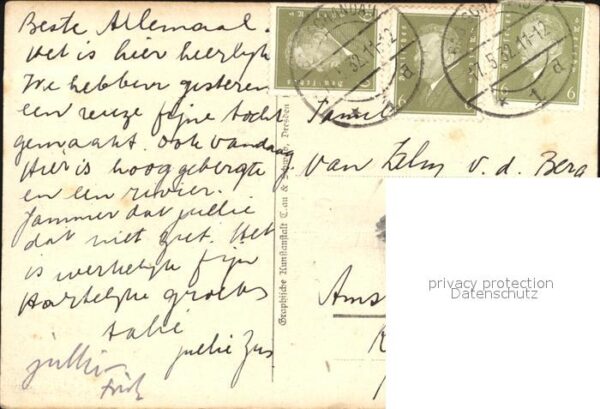 Beste Allemaal.
Het is hier heerlijk
We hebben gisteren
een reuze fijne tocht
gemaakt. Ook vandaag
Hier is hooggebergte
en een rivier.
Jammer dat jullie
dat niet ziet. Het
is werkelijk fijn
Hartelijke groeten
jullie Zus.
Graphische Kunstanstalt Dresden
6
6
.5.32.11-12
Famil
van Zelm v. d. Berg
Ams
privacy protection
Datenschutz